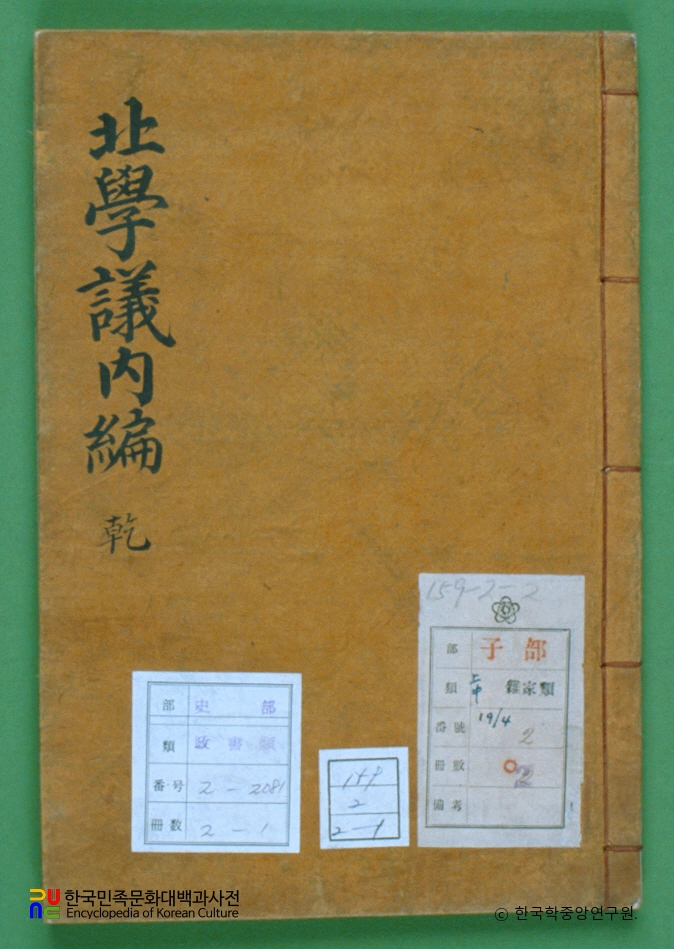 北學議内編
乾
159-2-2
部 子部
類 雜家類
番號 19/4 2
冊數 2
備考
部 史部
類 政書類
番号 2-2081
冊数 2-1
159
2
2-1
한국민족문화대백과사전
Encyclopedia of Korean Culture
© 한국학중앙연구원.